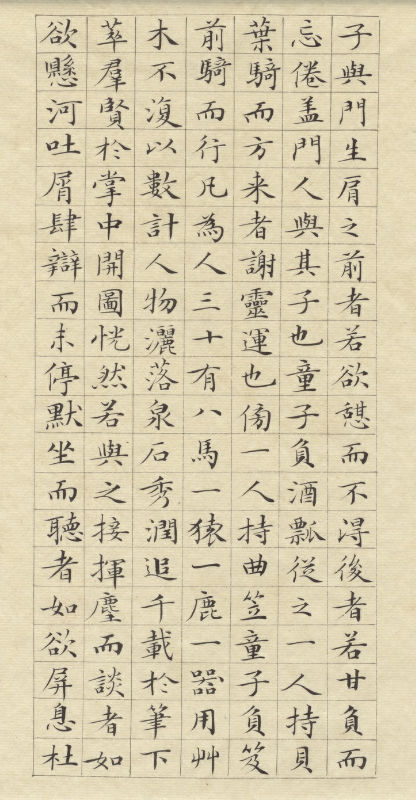 子與門生肩之前者若欲憇而不淂後者若甘負而
忘倦盖門人與其子也童子負酒瓢從之一人持貝
葉騎而方来者謝靈運也傍一人持曲笠童子負笈
前騎而行凡為人三十有八馬一猿一鹿一器用艸
木不復以數計人物灑落泉石秀潤追千載於筆下
萃羣賢於掌中開圖恍然若與之接揮麈而談者如
欲懸河吐屑肆辯而未停默坐而聽者如欲屏息杜